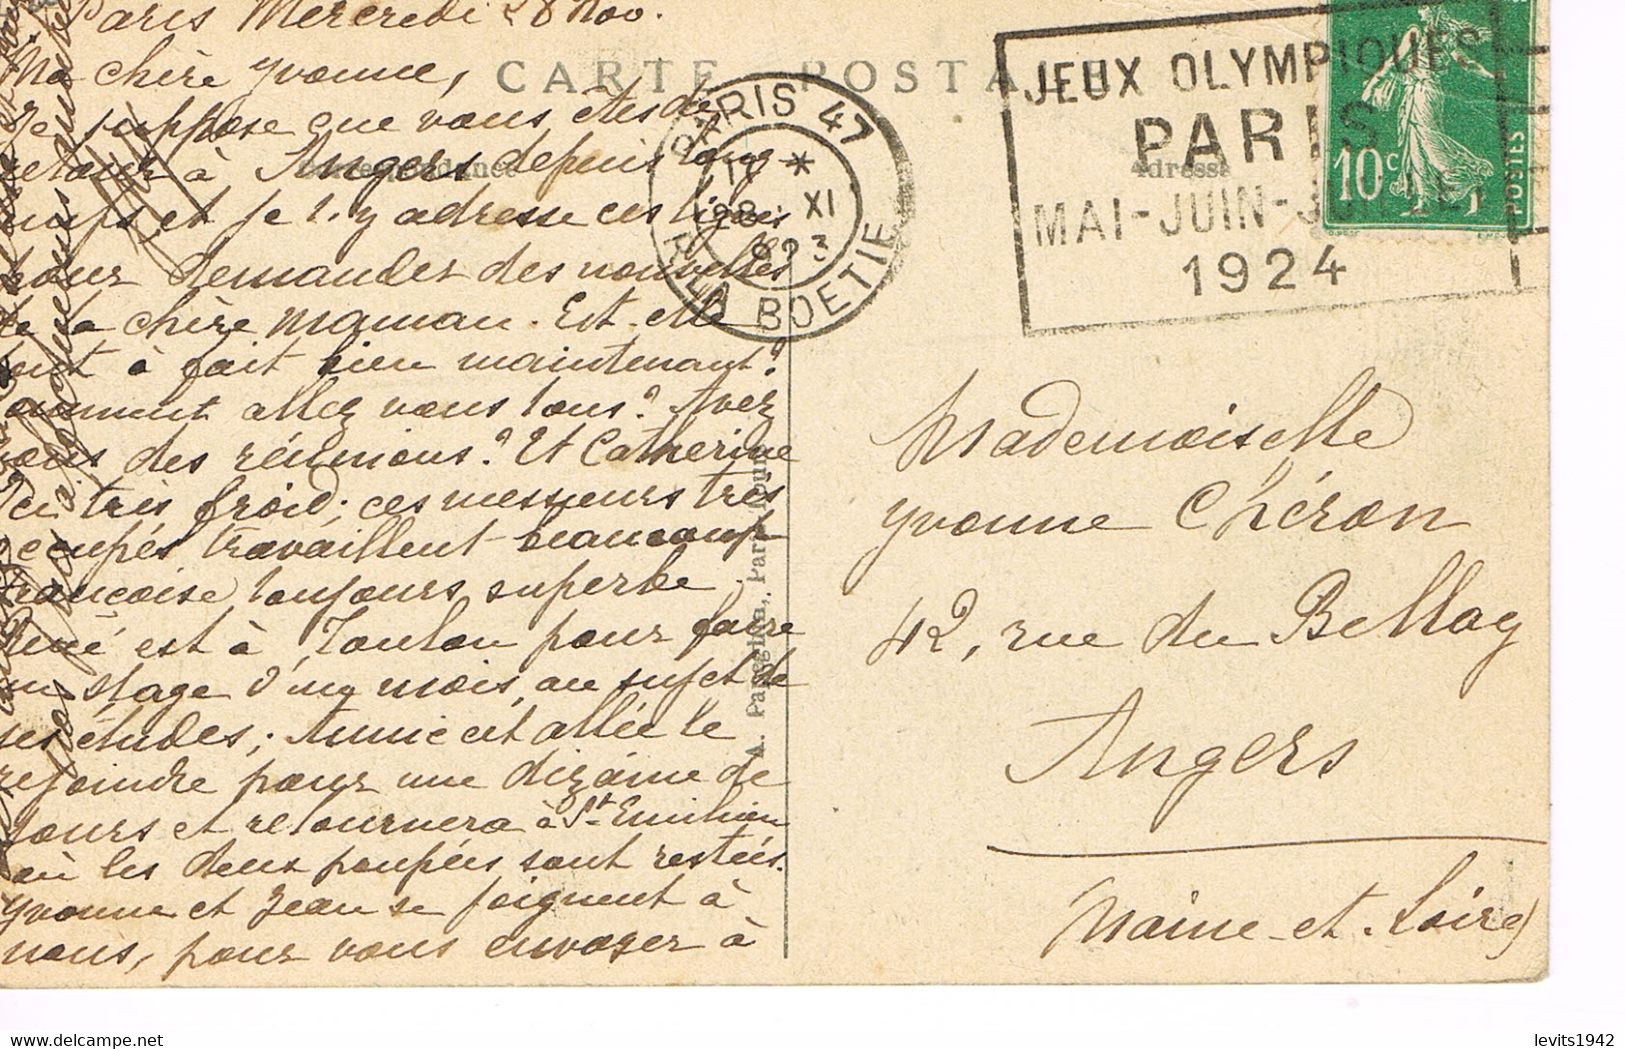 Paris Mercredi 28 Nov.
Ma chère Yvonne,
Je suppose que vous êtes de
retour à Angers depuis long
temps et je m'y adresse ces lignes
pour demander des nouvelles
de ta chère maman. Est-elle
tout à fait bien maintenant?
Comment allez vous tous? Avez
vous des réunions? Et Catherine
Ici très froid; ces messieurs très
occupés travaillent beaucoup
Françoise toujours superbe
René est à Toulon pour faire
un stage d'un mois au sujet de
ses études; Annie est allée le
rejoindre pour une dizaine de
jours et retournera à St Emilion
où les deux poupées sont restées.
Yvonne et Jean se joignent à
nous, pour vous envoyer à
CARTE POSTALE
Correspondance
Adresse
PARIS 47
17 *
28 XI
923
R. LA BOETIE
JEUX OLYMPIQUES
PARIS
MAI-JUIN-JUILLET
1924
10c
POSTES
A. Papeghin, Paris-Tours
Mademoiselle
Yvonne Chéron
42, rue du Bellay
Angers
(Maine-et-Loire)
levits1942